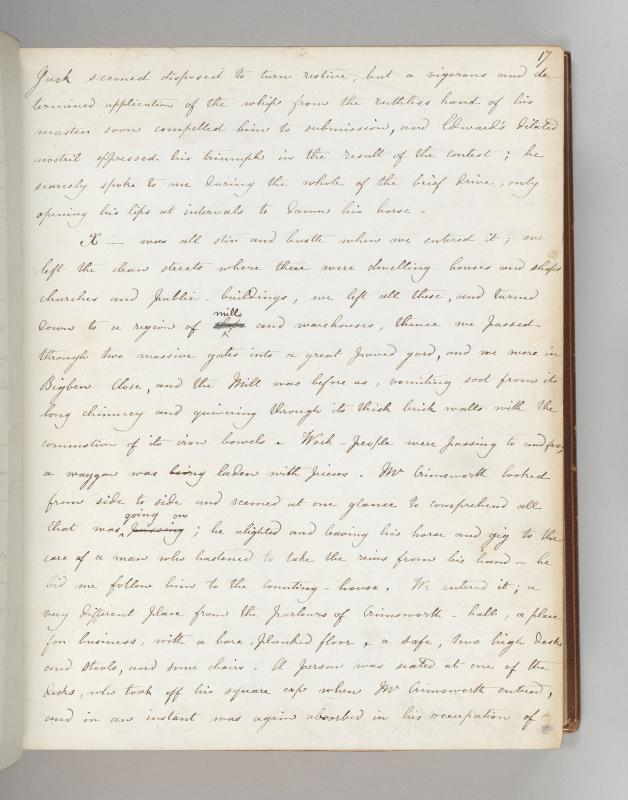 17
Jack seemed disposed to turn restive, but a vigorous and de
termined application of the whip from the ruthless hand of his
master soon compelled him to submission, and Edward's dilated
nostril expressed his triumph in the result of the contest; he
scarcely spoke to me during the whole of the brief drive, only
opening his lips at intervals to damn his horse.
X — was all stir and bustle when we entered it; we
left the clean streets where there were dwelling-houses and shops
churches and public-buildings, we left all these, and turned
mills
down to a region of and warehouses, thence we passed
through two massive gates into a great paved yard, and we were in
Bigben Close, and the Mill was before us, vomiting soot from its
long chimney and quivering through its thick brick walls with the
commotion of its iron bowels. Work-people were passing to and fro;
a waggon was being laden with pieces. Mr Crimsworth looked
from side to side and seemed at one glance to comprehend all
going on
that was passing; he alighted and leaving his horse and gig to the
care of a man who hastened to take the reins from his hand - he
bid me follow him to the counting-house. We entered it; a
very different place from the parlours of Crimsworth-hall, a place
for business, with a bare, planked floor, a safe, two high desks
and stools, and some chairs. A person was seated at one of the
desks, who took off his square cap when Mr Crimsworth entered,
and in an instant was again absorbed in his occupation of